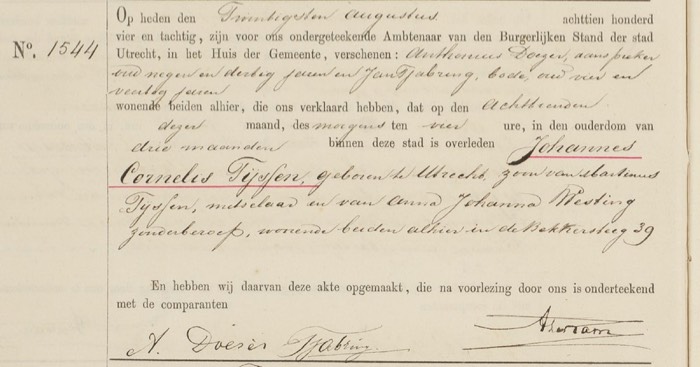 Op heden den Twintigsten Augustus achttien honderd
vier en tachtig, zijn voor ons ondergeteekende Ambtenaar van den Burgerlijken Stand der stad
Nº. 1544 Utrecht, in het Huis der Gemeente, verschenen: Anthonius Doeser, aanspreker
oud negen en dertig jaren en Jan Tjabring, bode, oud vier en
veertig jaren
wonende beiden alhier, die ons verklaard hebben, dat op den Achttienden
dezer maand, des morgens ten vier ure, in den ouderdom van
drie maanden binnen deze stad is overleden Johannes
Cornelis Tijssen, geboren te Utrecht, zoon van Martinus
Tijssen, metselaar en van Anna Johanna Westing
zonder beroep, wonende beiden alhier in de Bakkersteeg 39
En hebben wij daarvan deze akte opgemaakt, die na voorlezing door ons is onderteekend
met de comparanten
A. Doeser Tjabring